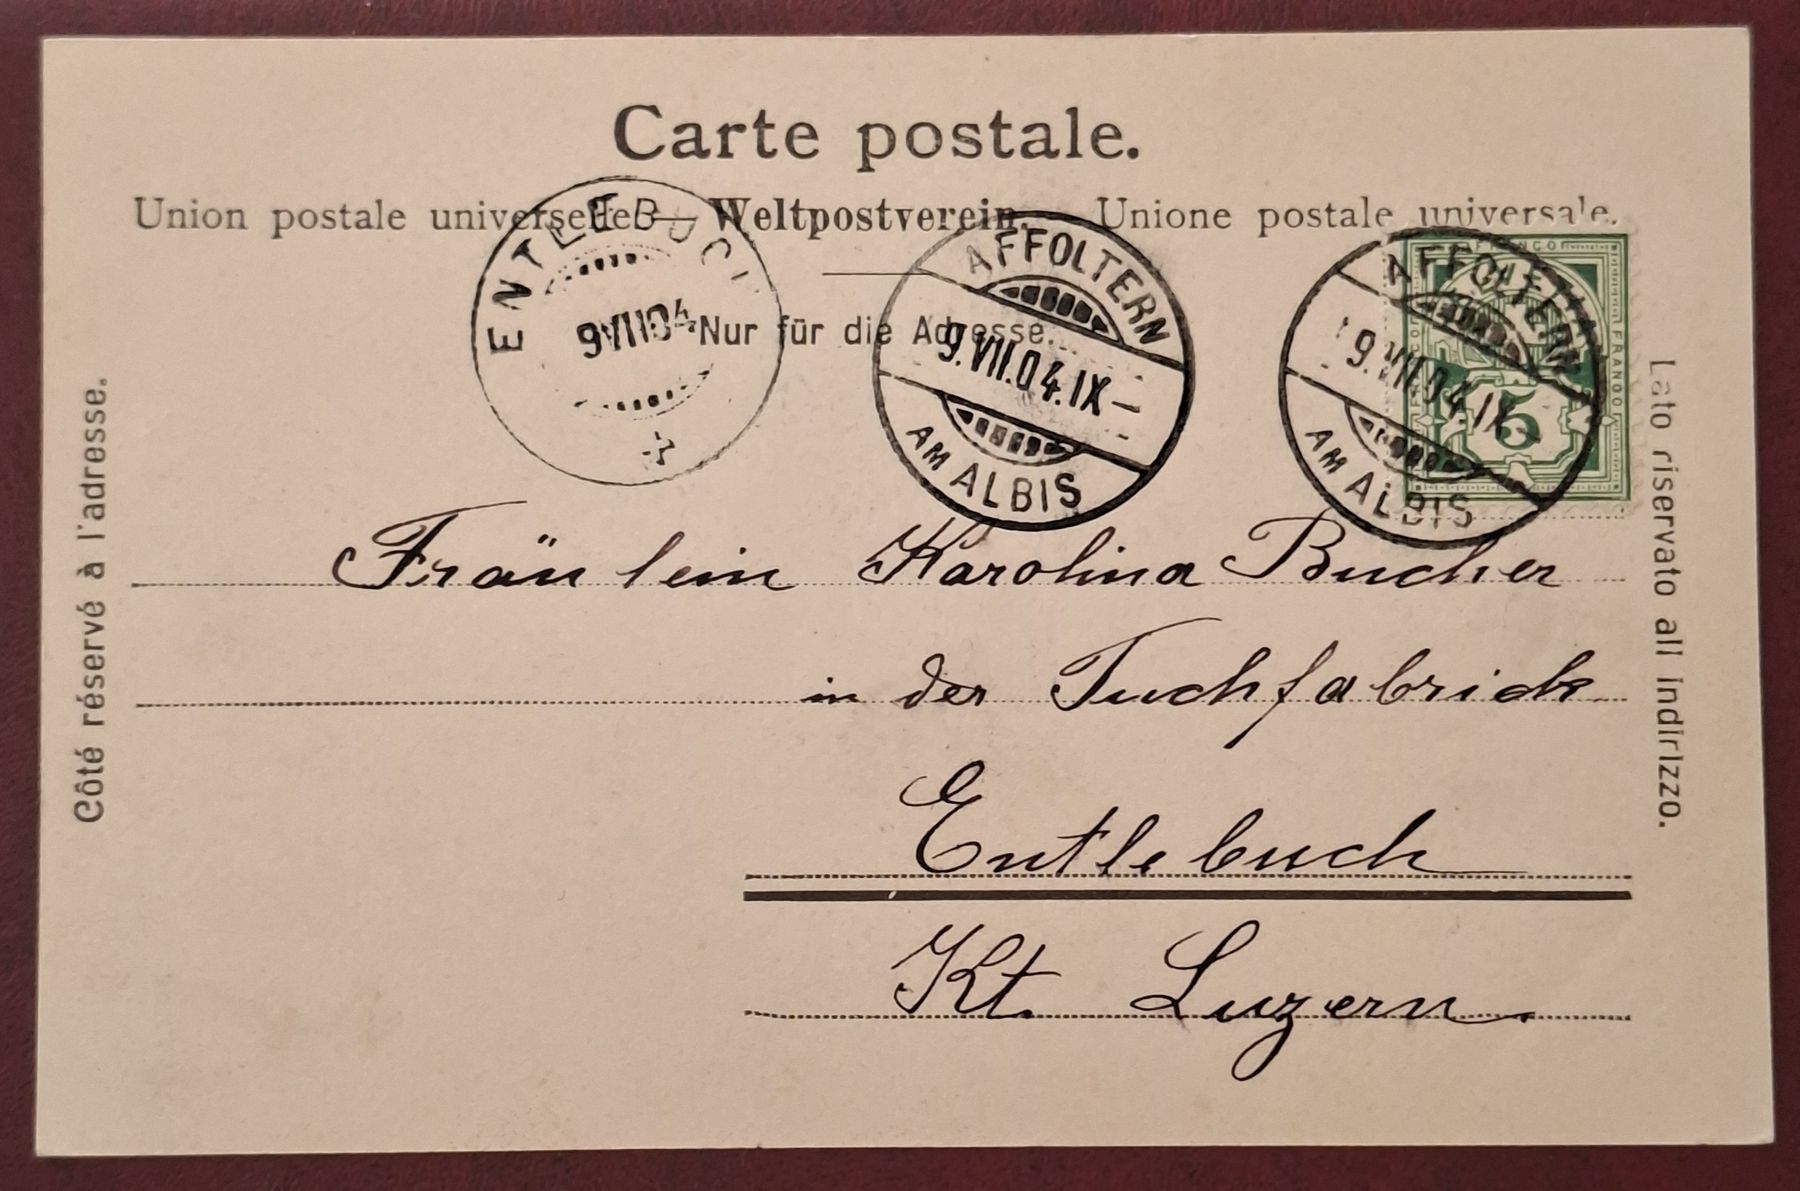 Carte postale.
Union postale universelle. — Weltpostverein. — Unione postale universale.
ENTLEBUCH
9.VII.04
AFFOLTERN
9.VII.04.IX–
AM ALBIS
AFFOLTERN
9.VII.04.IX–
AM ALBIS
FRANCO
FRANCO
5
Nur für die Adresse.
Côté réservé à l'adresse.
Lato riservato all indirizzo.
Fräulein Karolina Bucher
in der Tuchfabrick
Entlebuch
Kt. Luzern.